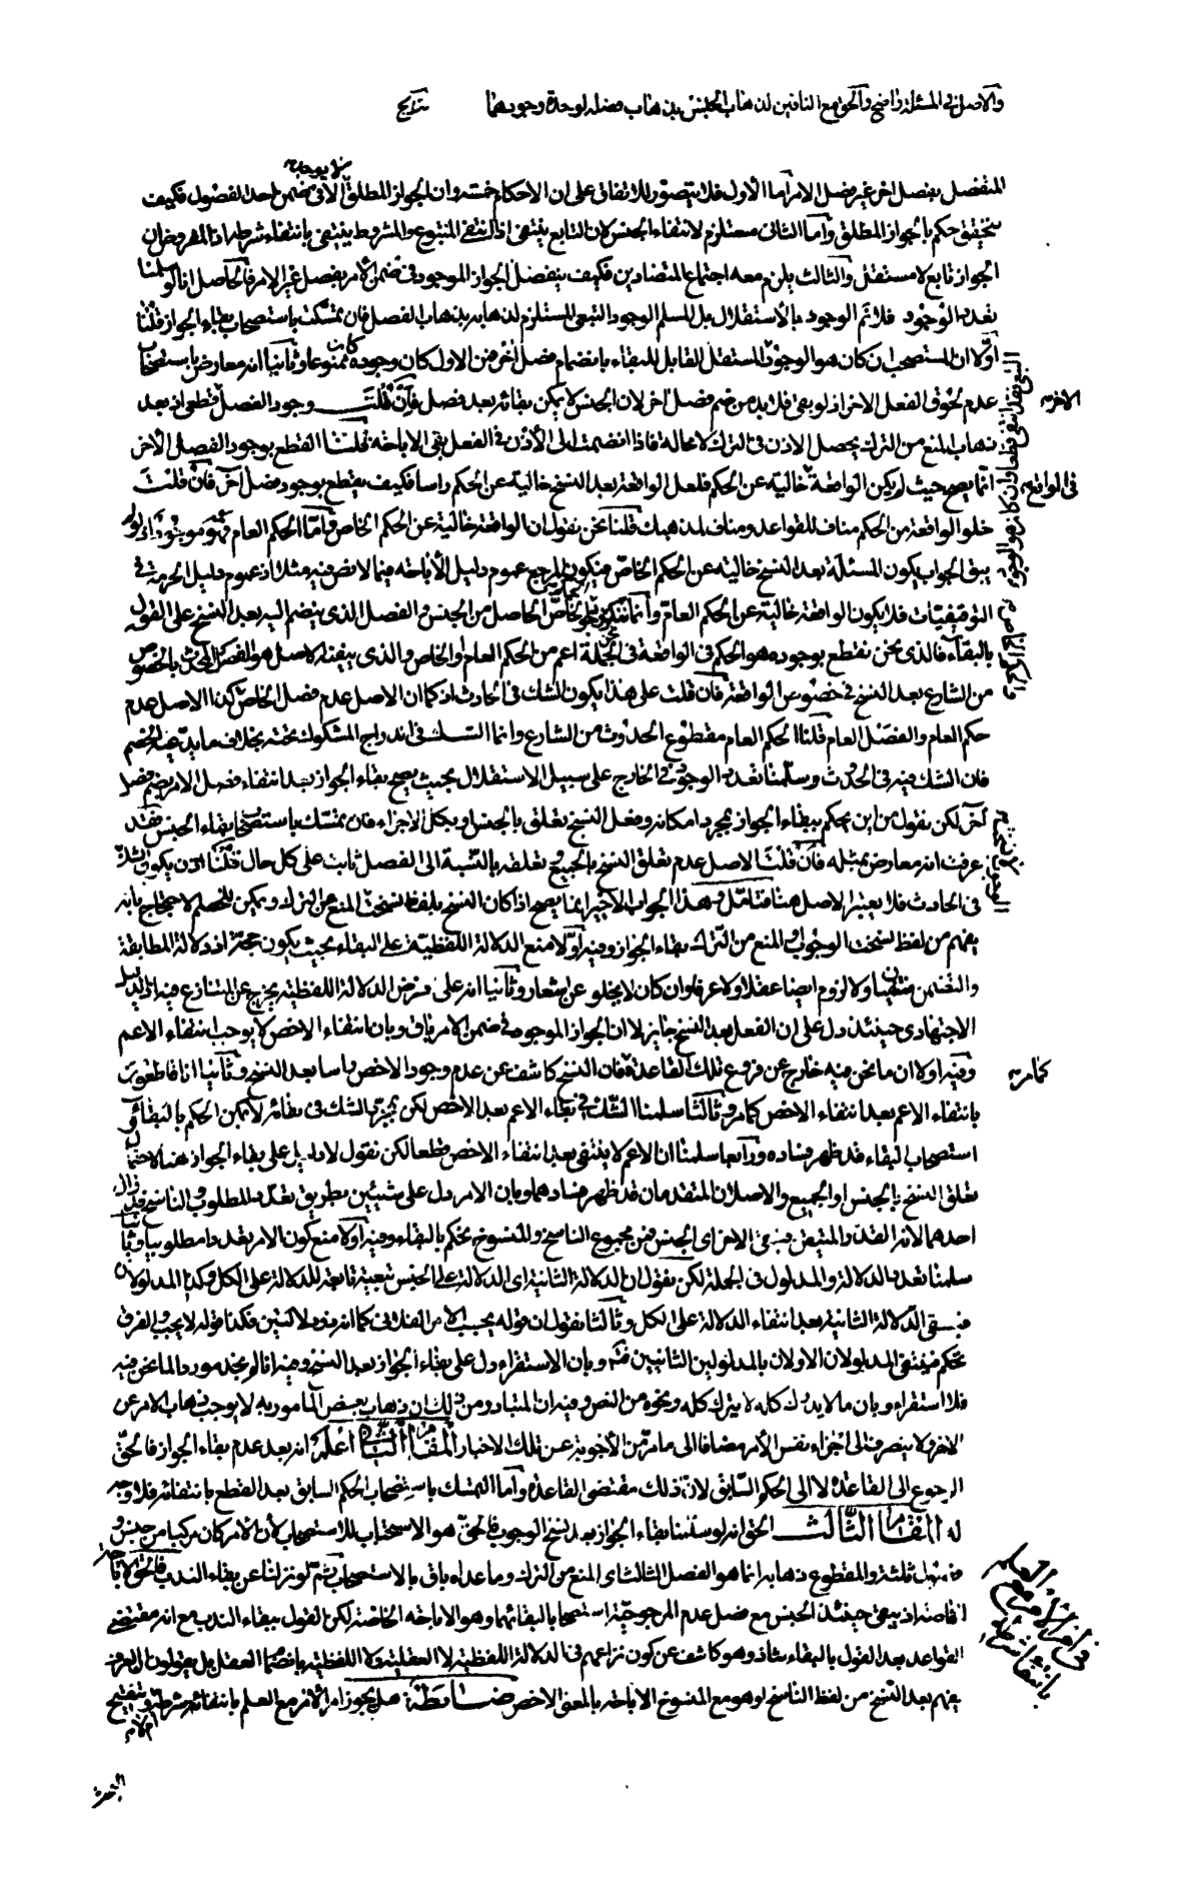 والاصل في المسئلة واضح والحق مع النافين لذهاب الجنس بذهاب فصله لوحدة وجودهما نتايج
لا يوجد
المنفصل بفصل اخر غير فصل الامر اما الأول فلا يتصور للاتفاق على ان الاحكام خمسة وان الجواز المطلق الا في ضمن احد الفصول فكيف
يتحقق حكم بالجواز المطلق واما الثاني فمستلزم لانتفاء الجنس لان التابع ينتفى اذا انتفى المتبوع والمشروط ينتفى بانتفاء شرطه اذ المفروض ان
الجواز تابع لا مستقل والثالث يلزم معه اجتماع المتضادين فكيف ينفصل الجواز الموجود في ضمن الأمر بفصل غير الامر فالحاصل انا لو سلمنا
تعدد الوجود فلا تم الوجود بالأستقلال بل المسلم الوجود التبعي المستلزم لذهابه بذهاب الفصل فان تمسكت باستصحاب بقاء الجواز قلنا
اولا ان المستصحب ان كان هو الوجود المستقل القابل للبقاء بانضمام فصل اخر فمن الاول كان وجوده ممنوعا وثانيا انه معارض باستصحاب
عدم لحوق الفصل الاخر اذ لو بقى فلا بد من ضم فصل اخر لان الجنس لا يمكن بقائه بعد فصل فان قلت وجود الفصل قطعي اذ بعد
ذهاب المنع من الترك يحصل الاذن في الترك لا محالة فاذا انضمت الى الأذن في الفعل بقى الاباحة قلنا القطع بوجود الفصل الأخر
انما يصح حيث لم يكن الواقعة خالية عن الحكم فلعل الواقعة بعد النسخ خالية عن الحكم راسا فكيف يقطع بوجود فصل آخر فان قلت
خلو الواقعة من الحكم مناف للقواعد ومناف لمذهبك قلنا نحن نقول ان الواقعة خالية عن الحكم الخاص واما الحكم العام فهو موجود اذ لو لم
يبق الجواب يكون المسئلة بعد النسخ خالية عن الحكم الخاص فيكون المرجع عموم دليل الأباحة فيما لا نص فيه مثلا او عموم دليل الحرمة في
التوقيفيات فلا يكون الواقعة خالية عن الحكم العام وانما ننكر الخاص الحاصل من الجنس والفصل الذي ينضم اليه بعد النسخ على القول
بالبقاء فالذي نحن نقطع بوجوده هو الحكم في الواقعة في الجملة اعم من الحكم العام والخاص والذي ينفيه الاصل هو الفصل الحادث بالخصوص
من الشارع بعد النسخ في خصوص الواقعة فان قلت على هذا يكون الشك في الحادث اذ كما ان الاصل عدم فصل الخاص كذا الاصل عدم
حكم العام والفصل العام قلنا الحكم العام مقطوع الحدوث من الشارع وانما الشك في اندراج المشكوك تحته بخلاف ما يدعيه الخصم
فان الشك فيه في الحدوث وسلمنا تعدد الوجود في الخارج على سبيل الاستقلال بحيث يصح بقاء الجواز بعد انتفاء فصل الامر بضم فصل
آخر لكن نقول من اين يحكم ببقاء الجواز بمجرد امكانه ولعل النسخ تعلق بالجنس او بكل الاجزاء فان تمسك باستصحاب بقاء الجنس فقد
عرفت انه معارض بمثله فان قلت الاصل عدم تعلق النسخ بالجميع وتعلقه بالنسبة الى الفصل ثابت على كل حال قلنا اذن يكون الشك
في الحادث فلا يعتبر الاصل هنا فتامل وهذا الجواب الأخير انما يصح اذا كان النسخ بلفظ نسخت المنع من الترك ويمكن للخصم الاحتجاج بانه
يفهم من لفظ نسخت الوجوب او المنع من الترك بقاء الجواز وفيه اولا منع الدلالة اللفظية على البقاء بحيث يكون حجة اذ دلالة المطابقة
والتضمن منتفيتان ولا لزوم ايضا عقلا ولا عرفا وان كان لا يخلو عن اشعار وثانيا انه على فرض الدلالة اللفظية يخرج عن المتنازع فيه اذ الدليل
الاجتهادي حينئذ دل على ان الفعل بعد النسخ جايز لا ان الجواز الموجود في ضمن الامر باق وبان انتفاء الاخص لا يوجب انتفاء الاعم
وفيه اولا ان ما نحن فيه خارج عن فروع تلك القاعدة فان النسخ كاشف عن عدم وجود الاخص راسا بعد النسخ وثانيا انا قاطعون
بانتفاء الاعم بعد انتفاء الاخص كما مر وثالثا سلمنا الشك في بقاء الاعم بعد الاخص لكن بمجرد الشك في بقائه لا يمكن الحكم بالبقاء
استصحاب البقاء قد ظهر فساده ورابعا سلمنا ان الاعم لا ينتفى بعد انتفاء الاخص قطعا لكن نقول لا دليل على بقاء الجواز هنا لاحتمال
تعلق النسخ بالجنس او الجميع والاصلان المتقدمان قد ظهر فسادهما وبان الامر دل على شيئين بطريق تعدد المطلوب والناسخ قد زال
احدهما لانه القدر المتيقن فبقى الاخر اى الجنس فمن مجموع الناسخ والمنسوخ يحكم بالبقاء وفيه اولا منع كون الامر بتعدد المطلوب وثانيا
سلمنا تعدد الدلالة والمدلول في الجملة لكن نقول ان الدلالة الثانية اى الدلالة على الجنس تبعية تابعة للدلالة على الكل وكذا المدلولان
فينتفى الدلالة الثانية بعد انتفاء الدلالة على الكل وثالثا نقول ان قوله يجب الامر الفلاني كما انه ذو دلالتين فكذا قوله لا يجب والفرق
تحكم فينتفى المدلولان الاولان بالمدلولين الثانيين فتم وبان الاستقراء دل على بقاء الجواز بعد النسخ وفيه انا لم نجد موردا لما نحن فيه
فلا استقراء وبان ما لا يدرك كله لا يترك كله ونحوه من النص وفيه ان المتبادر من ذلك ان ذهاب بعض المامور به لا يوجب ذهاب الامر عن
الاخر لا ينصرف الى اجزاء نفس الأمر مضافا الى ما مر من الأجوبة عن تلك الاخبار المقام الثاني اعلم انه بعد عدم بقاء الجواز فالحق
الرجوع الى القاعدة لا الى الحكم السابق لان ذلك مقتضى القاعدة واما التمسك باستصحاب الحكم السابق بعد القطع بانتفائه فلا وجه
له المقام الثالث الحق انه لو سلمنا بقاء الجواز بعد نسخ الوجوب فالحق هو الاستحباب للاستصحاب لأن الامر كان مركبا من جنس و
فصول ثلثة والمقطوع ذهابه انما هو الفصل الثالث اى المنع من الترك وما عداه باق بالاستصحاب ثم لو نزلنا عن بقاء الندب فالحق الاباحة
الخاصة اذ يبقى حينئذ الجنس مع فصل عدم المرجوحية استصحابا لبقائهما وهو الاباحة الخاصة لكن القول ببقاء الندب مع انه مقتضى
القواعد بعد القول بالبقاء شاذ وهو كاشف عن كون نزاعهم في الدلالة اللفظية لا العقلية ولا اللفظية بانضمام العقل بل يقولون ان العرف
يفهم بعد النسخ من لفظ الناسخ لو هو مع المنسوخ الاباحة بالمعنى الاخص ضابطة هل يجوز امر الآمر مع العلم بانتفاء شرطه وتنقيح
الاخر
في الواقعة
كما مر
في امر الآمر مع العلم
بانتفاء شرطه